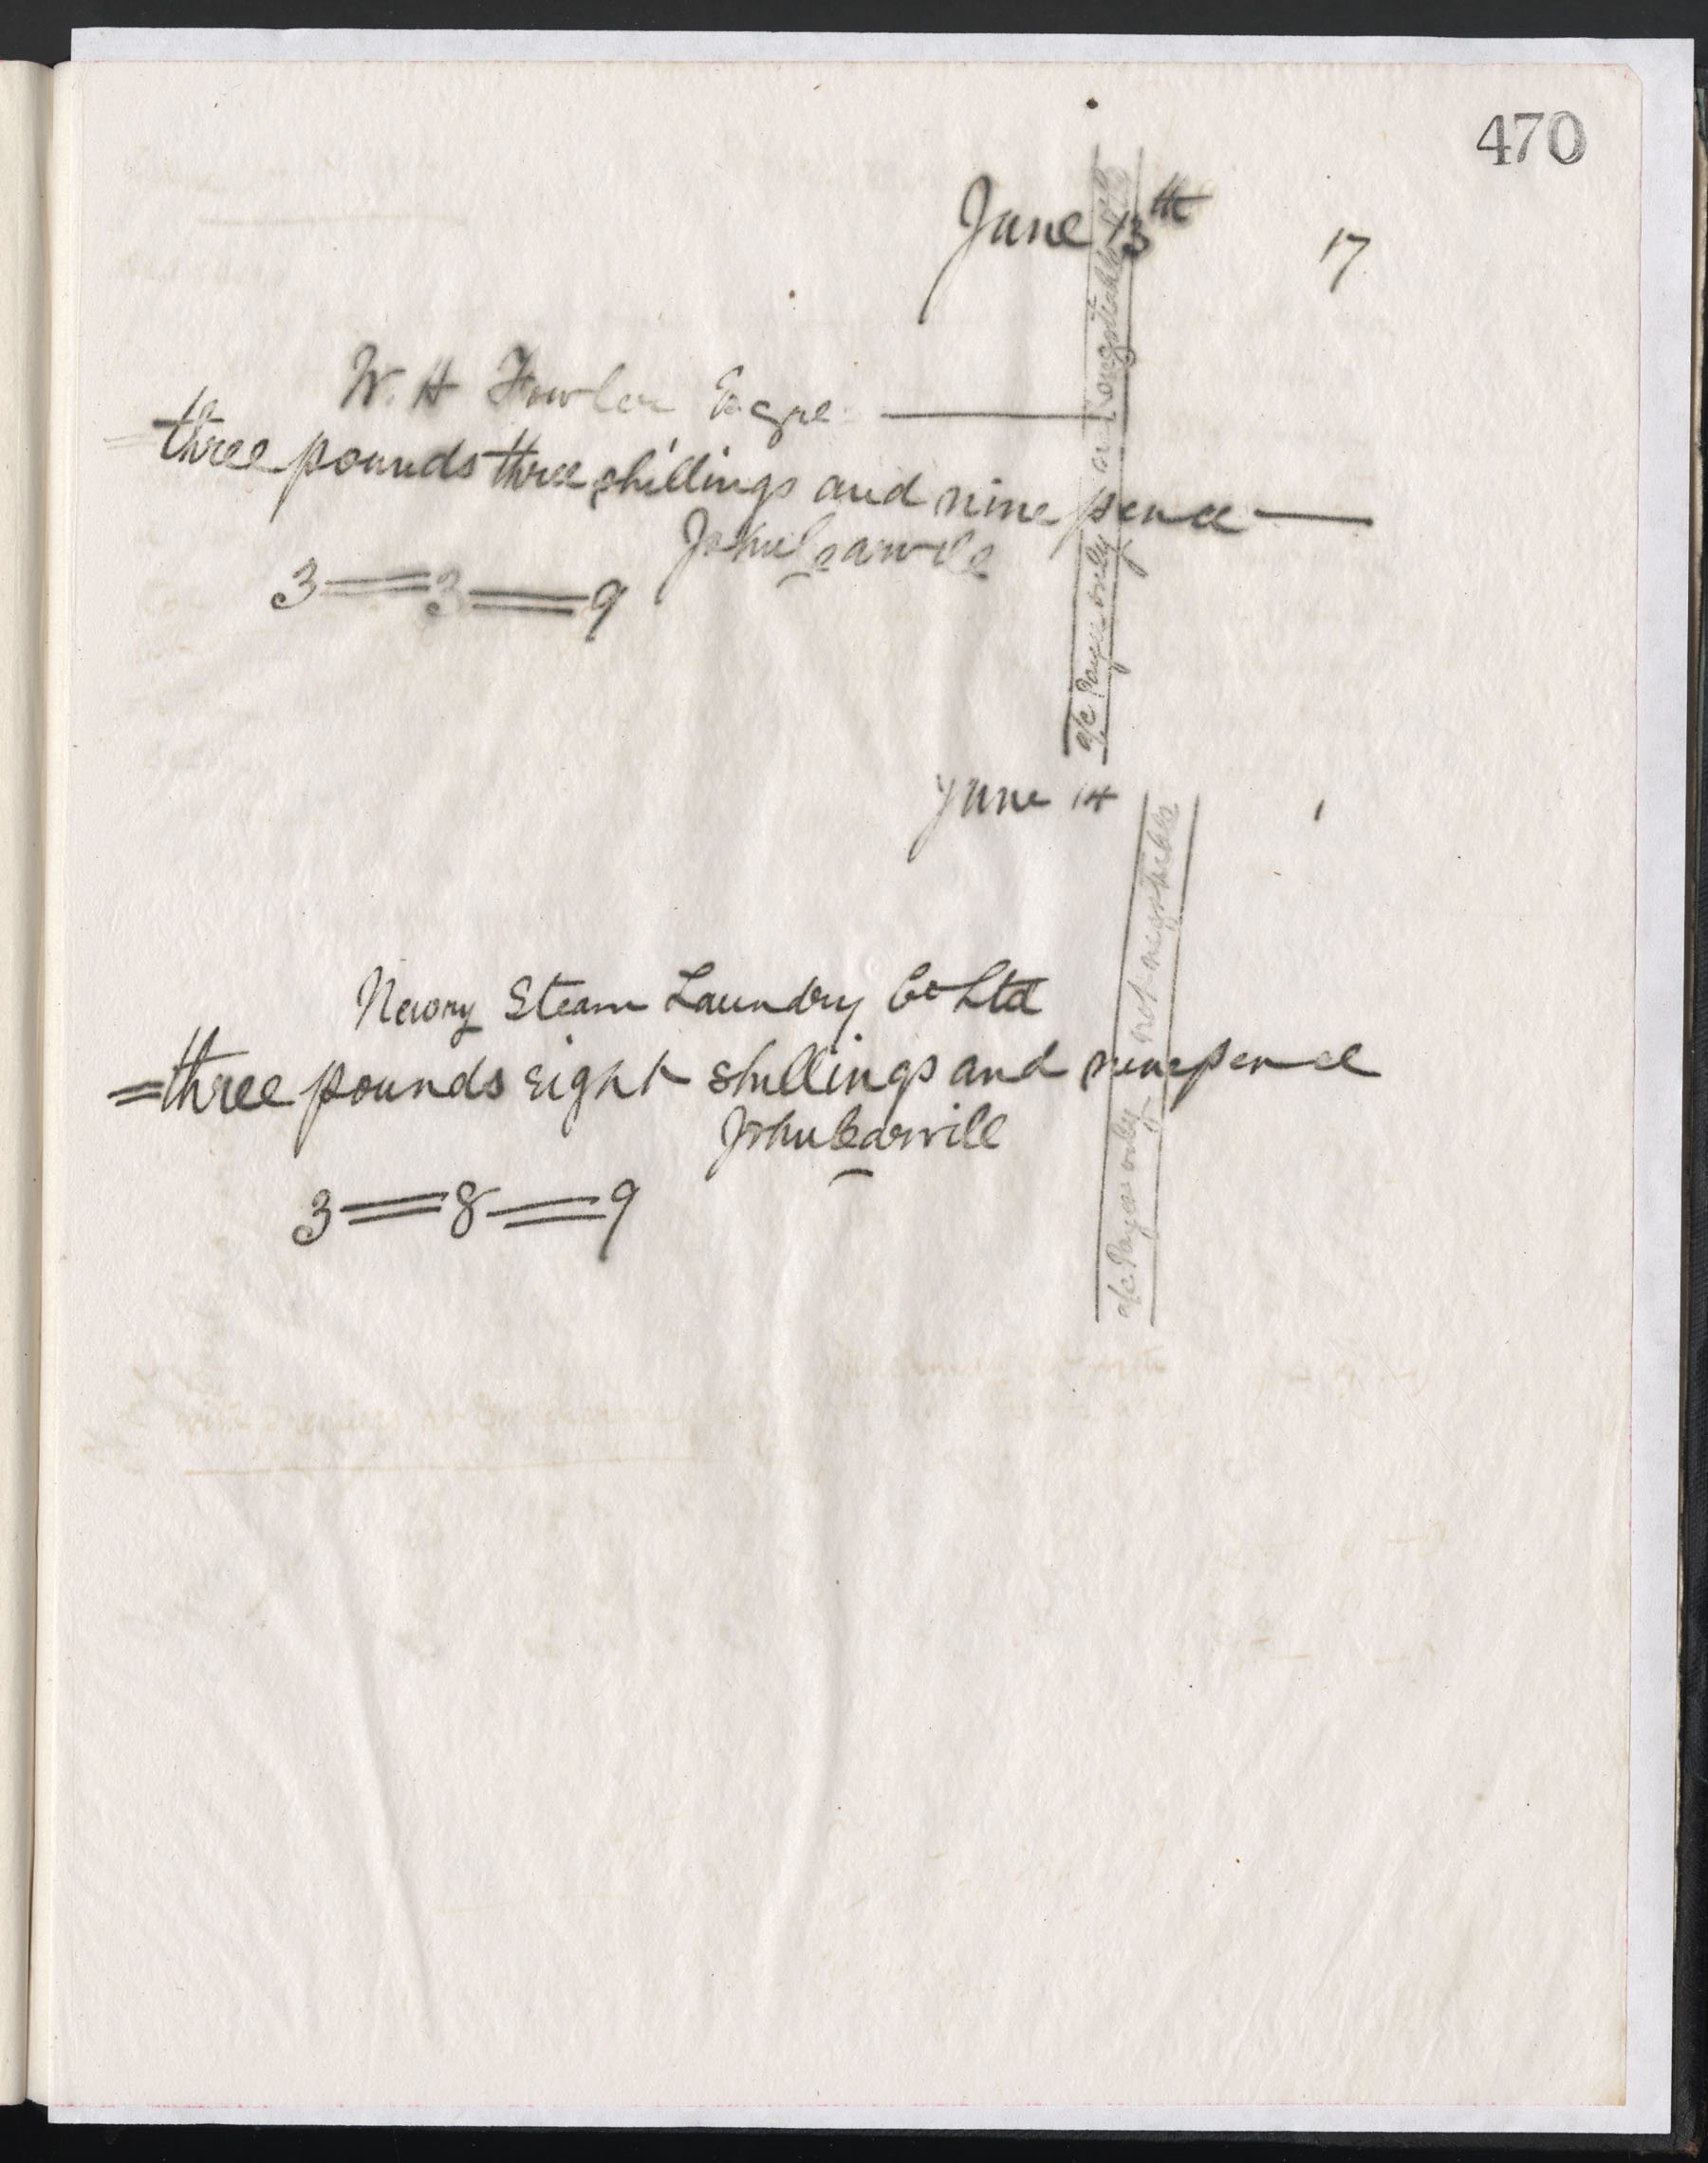 470
June 13th 17
W. H Fowler Esqre
three pounds three shillings and nine pence
John Carvill
3 = 3 = 9
a/c Payee only
June 14
Newry Steam Laundry Co Ltd
=three pounds eight shillings and ninepence
John Carvill
3 = 8 = 9
a/c Payee only not negotiable